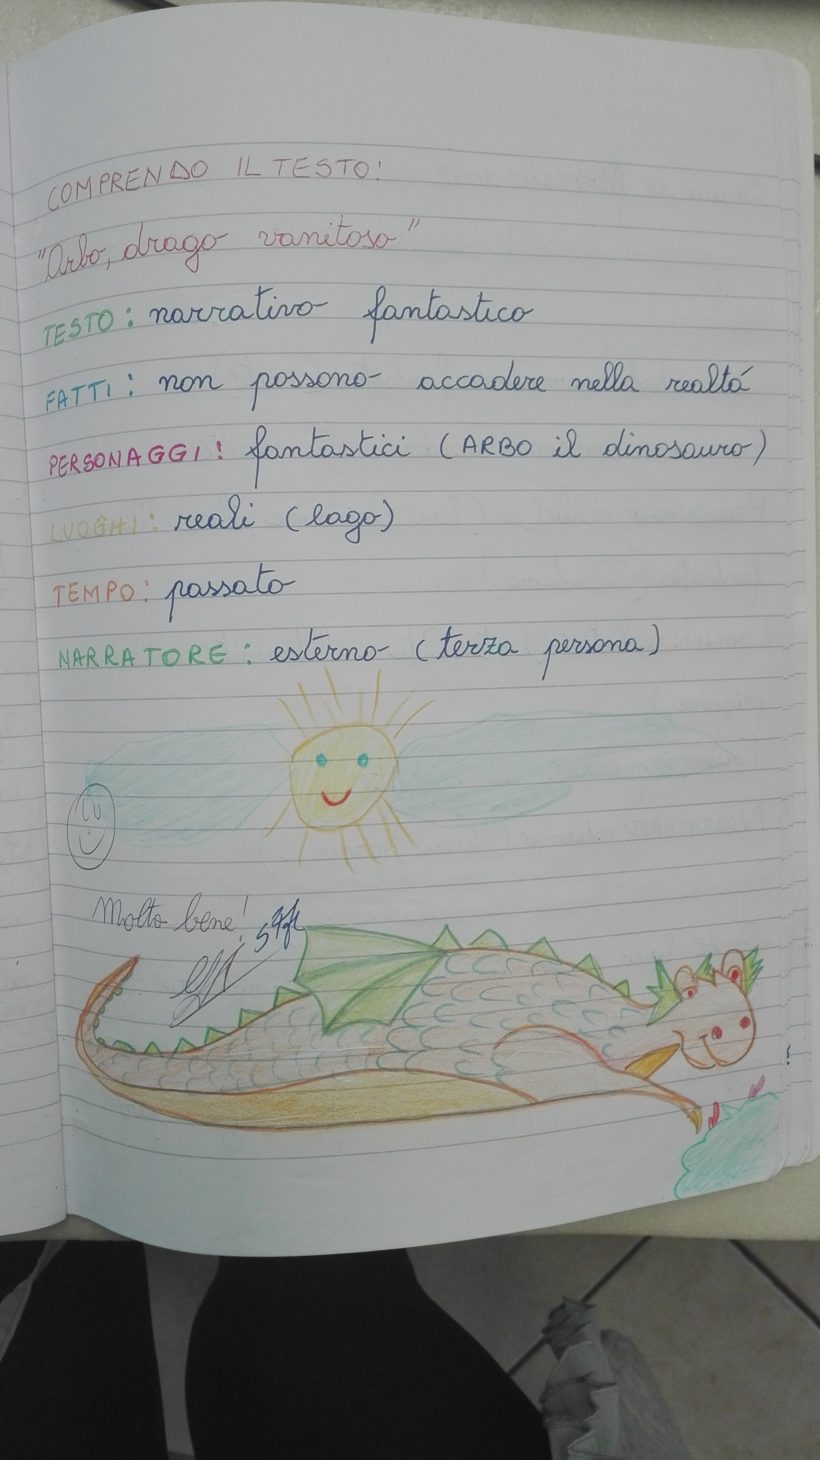 COMPRENDO IL TESTO!
"Arbo, drago vanitoso"
TESTO: narrativo fantastico
FATTI: non possono accadere nella realtá
PERSONAGGI: fantastici (ARBO il dinosauro)
LUOGHI: reali (lago)
TEMPO: passato
NARRATORE: esterno (terza persona)
Molto bene!